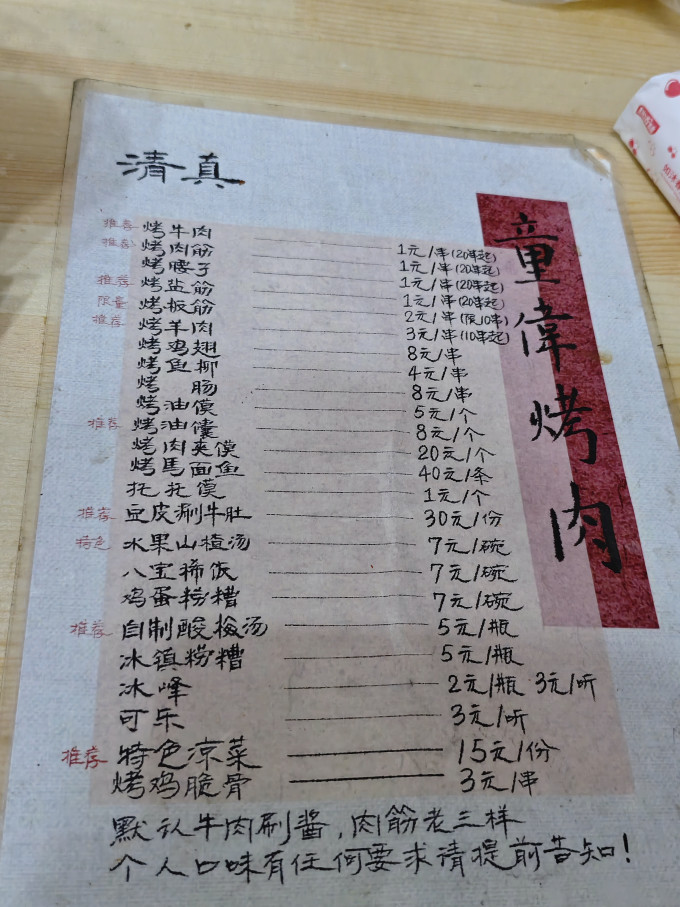 清真
童偉烤肉
推荐 烤牛肉 1元/串(20串起)
推荐 烤肉筋 1元/串(20串起)
烤腰子 1元/串(20串起)
推荐 烤筋 1元/串(20串起)
限量 烤板筋 2元/串(限10串)
推荐 烤羊肉 3元/串(10串起)
烤鸡翅 8元/串
烤鱼柳 4元/串
烤 肠 8元/串
烤油馍 5元/个
推荐 烤油馕 8元/个
烤肉夹馍 20元/个
烤馬面鱼 40元/条
托托馍 1元/个
推荐 豆皮涮牛肚 30元/份
特色 水果山楂汤 7元/碗
八宝稀饭 7元/碗
鸡蛋捞糟 7元/碗
推荐 自制酸梅汤 5元/瓶
冰镇捞糟 5元/瓶
冰峰 2元/瓶 3元/听
可乐 3元/听
推荐 特色凉菜 15元/份
烤鸡脆骨 3元/串
默认牛肉刷酱,肉筋老三样
个人口味有任何要求请提前告知!